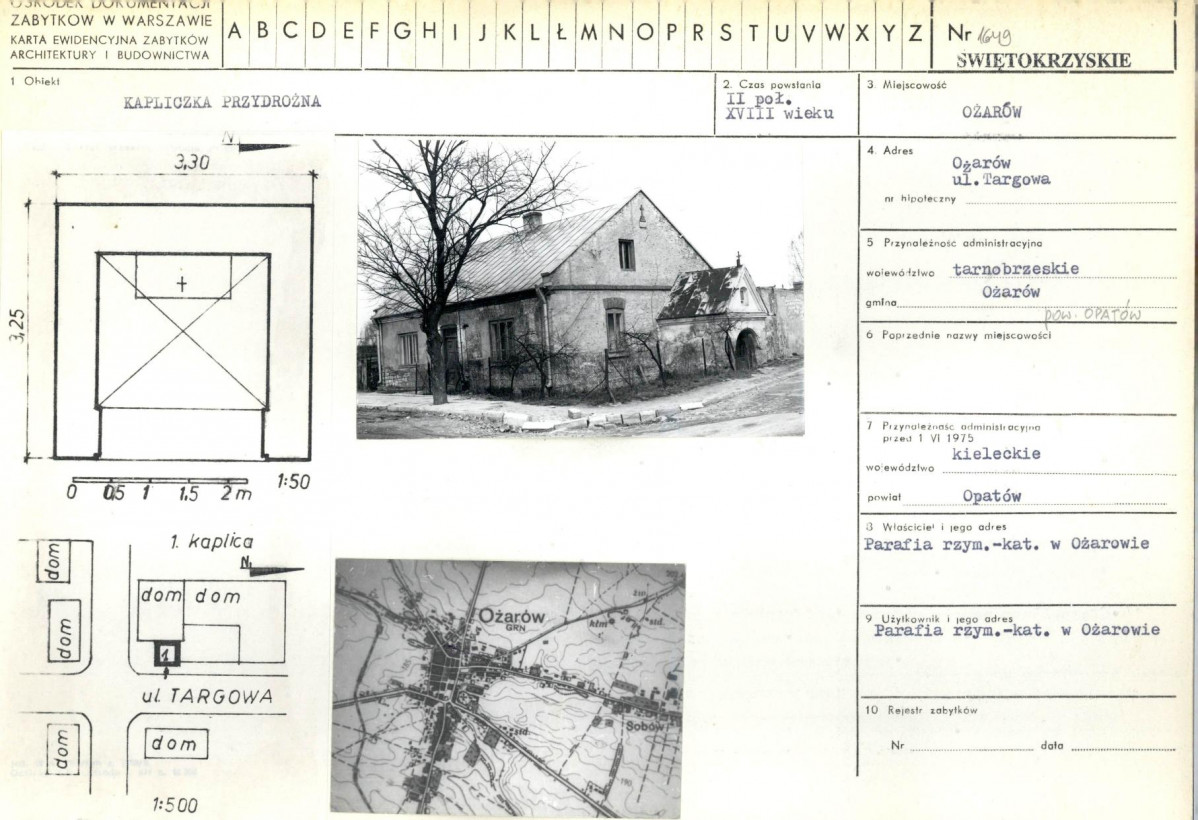 OŚRODEK DOKUMENTACJI
ZABYTKÓW W WARSZAWIE
KARTA EWIDENCYJNA ZABYTKÓW
ARCHITEKTURY I BUDOWNICTWA
A B C D E F G H I J K L Ł M N O P R S T U V W X Y Z
Nr 1649
ŚWIĘTOKRZYSKIE
1 Obiekt
KAPLICZKA PRZYDROŻNA
2. Czas powstania
II poł.
XVIII wieku
3. Miejscowość
OŻARÓW
4. Adres
Ożarów
ul.Targowa
nr hipoteczny
5 Przynależność administracyjna
województwo tarnobrzeskie
gmina Ożarów
pow. OPATÓW
6 Poprzednie nazwy miejscowości
7 Przynależność administracyjna
przed 1 VI 1975
województwo kieleckie
powiat Opatów
8 Właściciel i jego adres
Parafia rzym.-kat. w Ożarowie
9 Użytkownik i jego adres
Parafia rzym.-kat. w Ożarowie
10 Rejestr zabytków
Nr data
N
3,30
3,25
0 0,5 1 1,5 2m
1:50
1. kaplica
N
dom
dom
dom
dom
1
ul. TARGOWA
dom
dom
1:500
Ożarów
GRN
kłm
std.
210
Sobów
std.
190